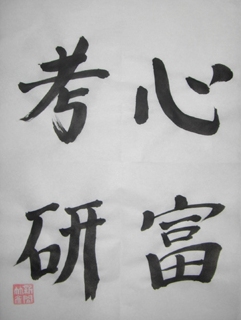 心富
考研